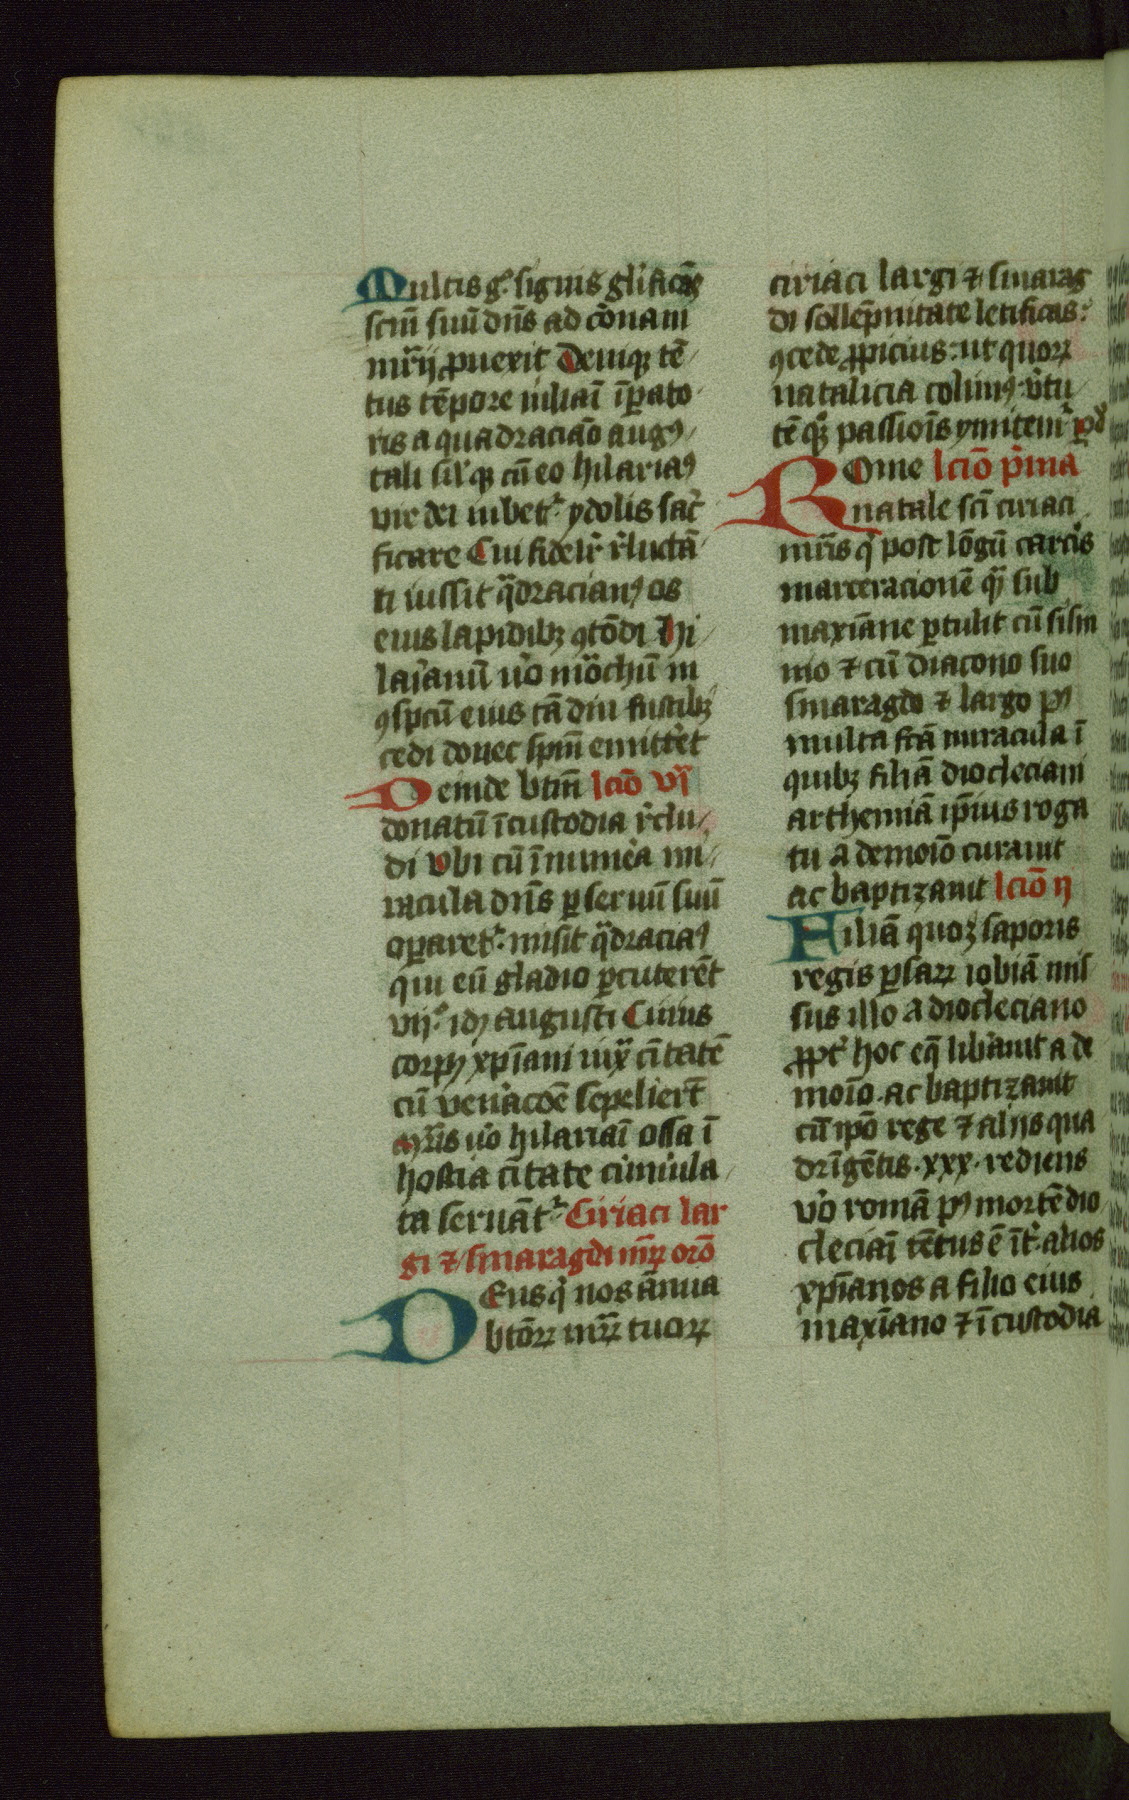 Multis g̊ signis glificās
scm̄ suū dn̄s ad cōnam
mr̄ij ꝓuexit Deniqꝫ tē
tus tēpore iuliaī īꝑato
ris a quadraciāo augꝰ
tali sil'qꝫ cū eo hilariaꝰ
vir dei iubetr ydolis sac̄
ficare Cui fidelr̄ r̄luctā
ti iussit q̄dracianꝰ os
eius lapidibꝫ ꝯtōdi Hi
lar̄anū v̊o mōchū in
ꝯspcū eius tādiu fustibꝫ
cedi donec spm̄ emittēt
Deinde btm̄ lc̄io vi
donatū ī custodia r̄clu
di Vbi cū īnumēa mi
racula dn̄s ꝑ seruū suū
oꝑaretr misit q̄draciaꝰ
qui eū gladio ꝑcuterēt
vij idꝰ augusti Cuius
corpꝰ xp̄iani iux̄ cītatē
cū ven̄acōe sepelierт̄
Mr̄is v̊o hilariaī ossa ī
hostia cītate cūmula
ta seruāt̄r Ciriaci lar
gi ⁊ smaragdi mr̄ꝝ orō
Deus q̄ nos ānua
btōꝝ mr̄ꝝ tuoꝝ
ciriaci largi ⁊ smarag
di sollēpnitate letificas
ꝯcede ꝓpicius ut quoꝝ
natalicia colimꝰ v̄tu
tē qꝫ passiōis ymitemr ꝑ d
Rome lc̄io p̄ma
natale sc̄i ciriaci
mr̄is q̄ post lōgū carcis
marceracionē q̄ sub
maxiāne ꝑtulit cū sisin
nio ⁊ cū diacono suo
smaragdo ⁊ largo pꝰ
multa fc̄ā miracula ī
quibꝫ filiā diocleciani
arthemiā ip̄ius roga
tu a demoīo curauit
ac baptizauit lc̄io ij
Filiā quoꝫ saporis
regis ꝑsaꝝ iobiā mis
sus illo a diocleciano
ꝓpt̄ hoc eq̄ libāuit a de
moīo ac baptizauit
cū ipō rege ⁊ alijs qua
drīgētis xxx rediens
v̊o romā pꝰ mortē dio
cleciaī tētus ē īt̄ alios
xp̄ianos a filio eius
maxiano ⁊ ī custodia